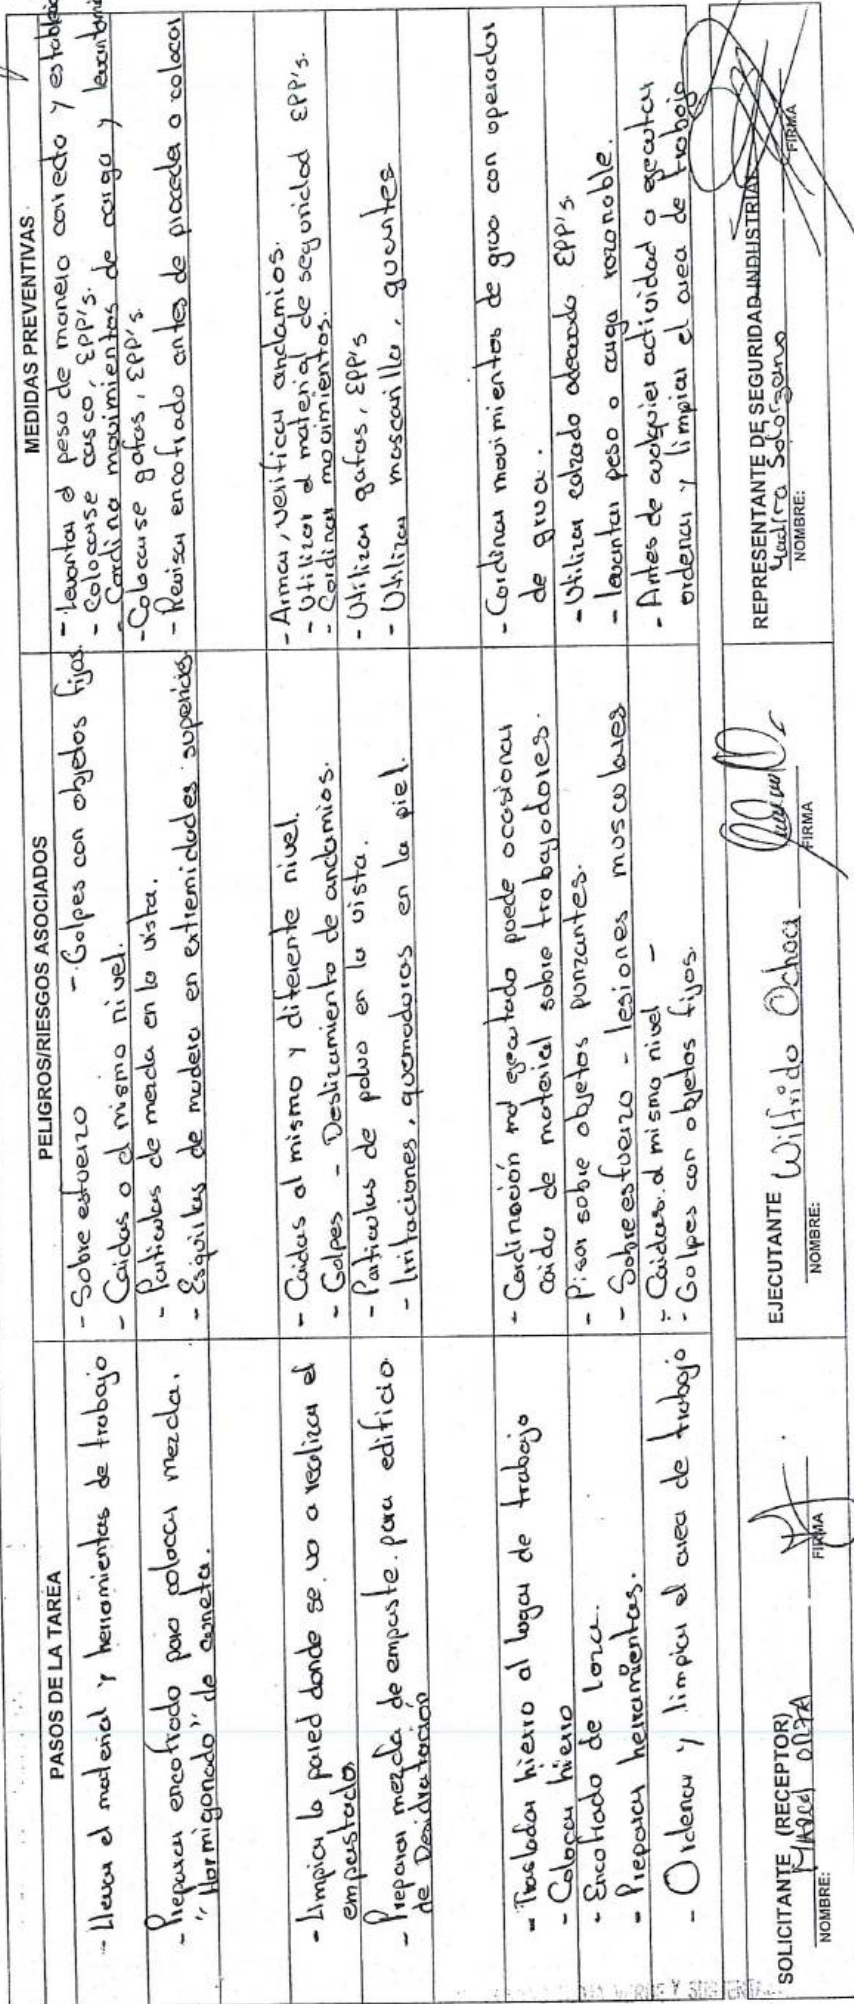 PASOS DE LA TAREA
PELIGROS/RIESGOS ASOCIADOS
MEDIDAS PREVENTIVAS
- Llevar el material y herramientas de trabajo
- Sobre esfuerzo - Golpes con objetos fijos.
- Caidas a el mismo nivel.
- Levantar el peso de manera correcta y
- Colocarse casco, EPP's.
- Cordinar movimientos de carga y
- Preparar encofrado para colocar mezcla.
"Hormigonado" de cuneta.
- Particulas de mezcla en la vista.
- Esquirlas de madera en extremidades superiores
- Colocarse gafas, EPP's.
- Revisar encofrado antes de proceder a colocar
- Limpiar la pared donde se va a realizar el
empastado
- Caidas al mismo y diferente nivel.
- Golpes - Deslizamiento de andamios.
- Armar, verificar andamios.
- Utilizar el material de seguridad EPP's.
- Cordinar movimientos.
- Preparar mezcla de empaste para edificio
de Desidratación
- Particulas de polvo en la vista.
- Irritaciones, quemaduras en la piel.
- Utilizar gafas, EPP's
- Utilizar mascarilla, guantes
- Trasladar hierro al lugar de trabajo
- Colocar hierro
- Cordinación mal ejecutado puede ocasionar
caida de material sobre trabajadores.
- Cordinar movimientos de grua con operador
de grua.
- Encofrado de Loza.
- Preparar herramientas.
- Pisar sobre objetos punzantes.
- Sobre esfuerzo - lesiones musculares
- Utilizar calzado adecuado EPP's
- levantar peso o carga razonable.
- Ordenar y limpiar el area de trabajo
- Caidas al mismo nivel -
- Golpes con objetos fijos.
- Antes de cualquier actividad a ejecutar
ordenar y limpiar el area de trabajo
SOLICITANTE (RECEPTOR)
NOMBRE:
FIRMA
EJECUTANTE
Wilfrido Ochoa
NOMBRE:
FIRMA
REPRESENTANTE DE SEGURIDAD INDUSTRIAL
NOMBRE:
FIRMA